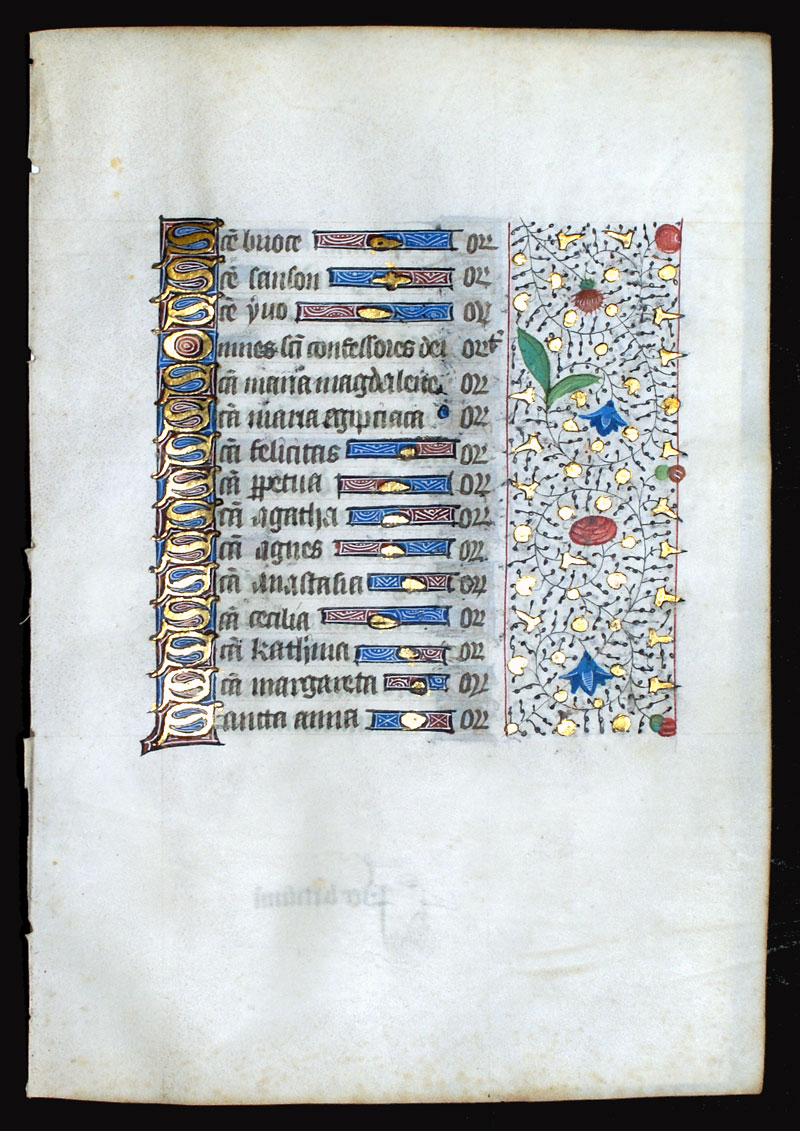 Scē brioce orͬ
Scē sanson orͬ
Scē yuo orͬ
Omnes scī confessores dei orͬtͤ
Scā maria magdalene orͬ
Scā maria egipciaca orͬ
Scā felicitas orͬ
Scā ꝑpetua orͬ
Scā agatha orͬ
Scā agnes orͬ
Scā anastasia orͬ
Scā cecilia orͬ
Scā katherina orͬ
Scā margareta orͬ
Sancta anna orͬ